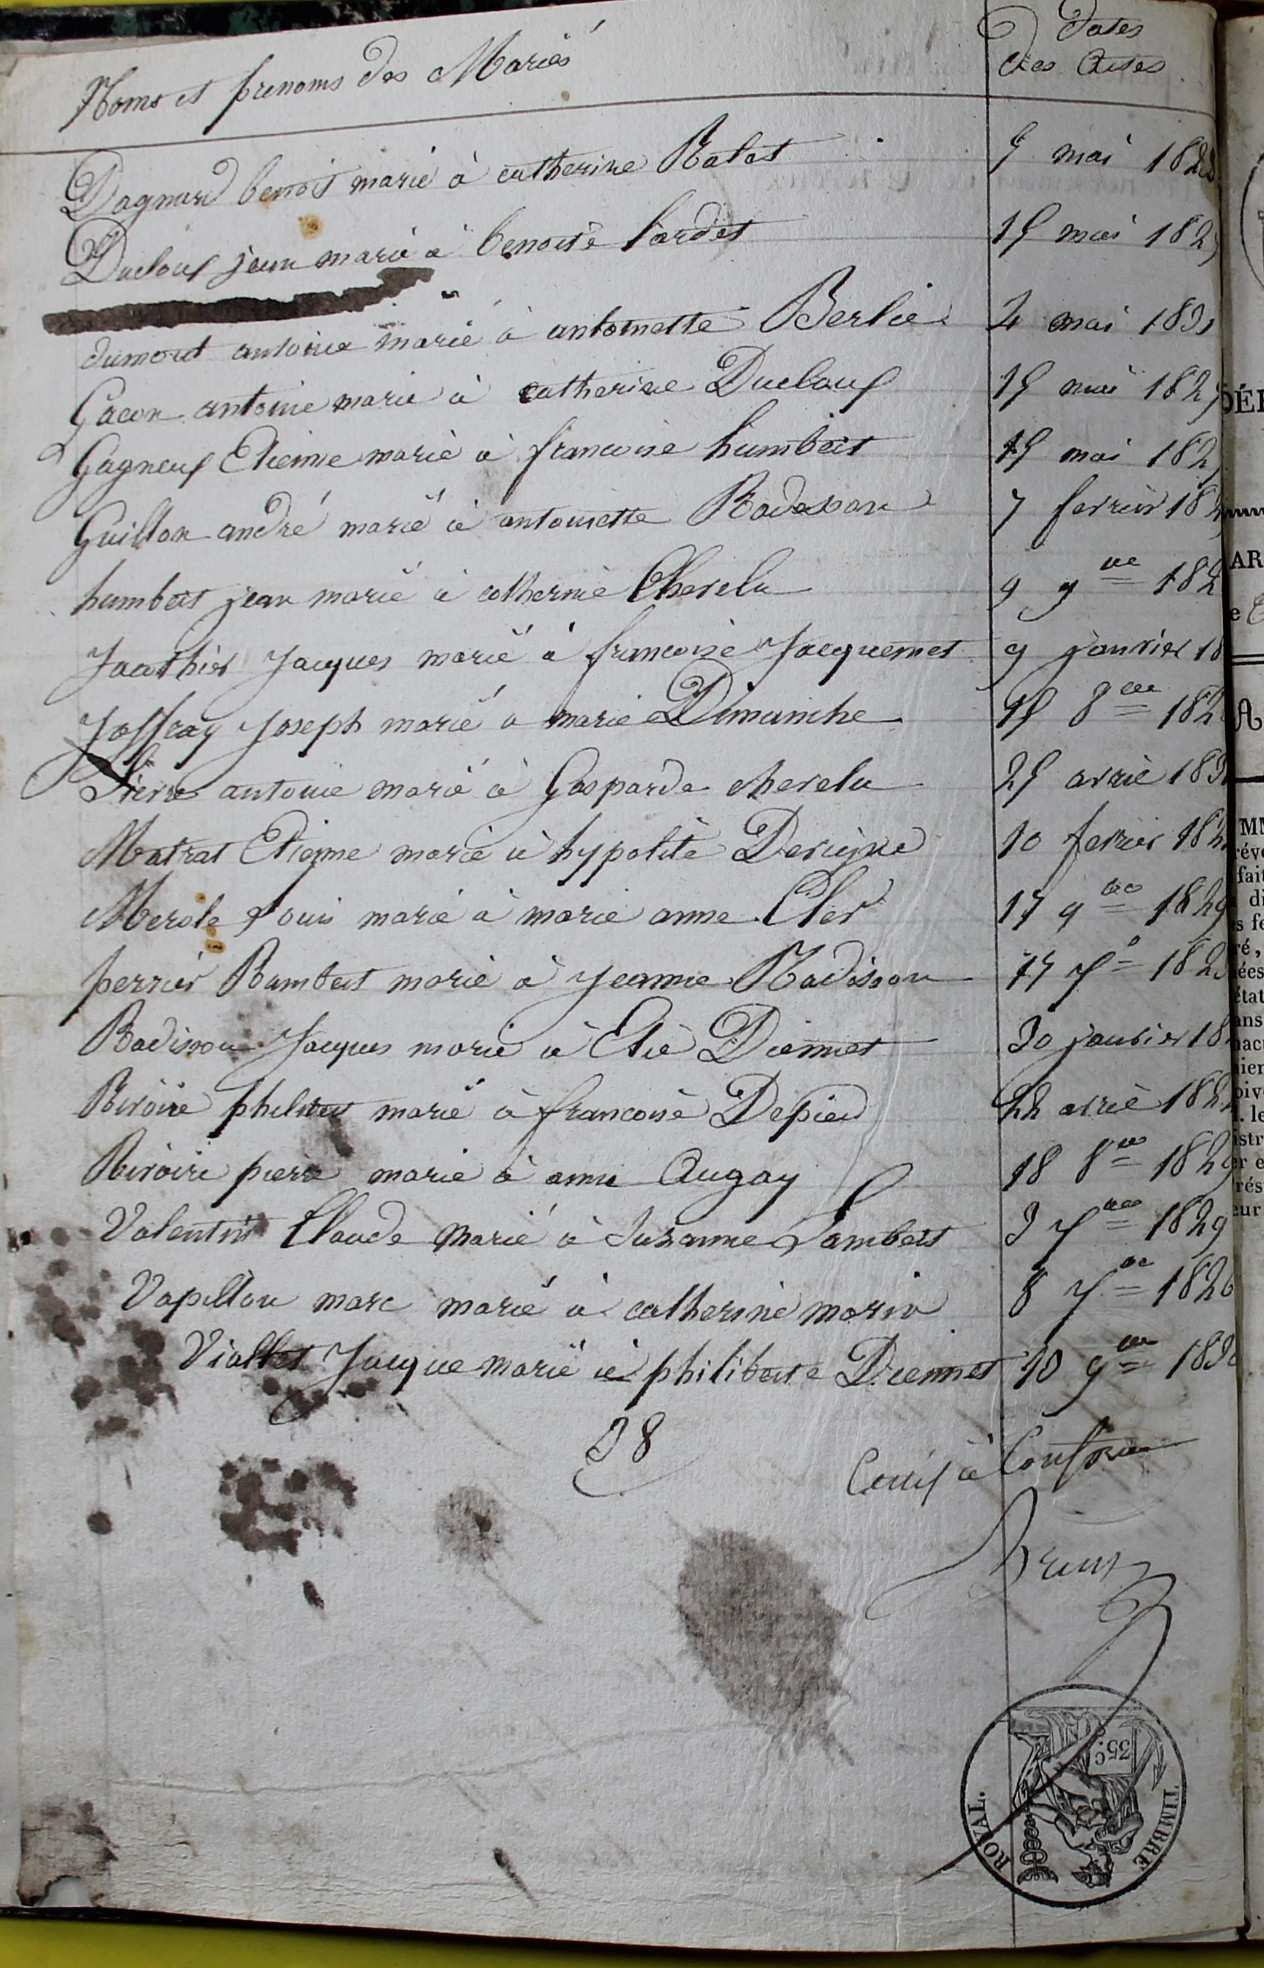 Noms et prenoms des Mariés
dates
des Actes
Dagnard benoit marié à catherine Ralet 9 mai
Duclouf jean marié à benoite Pardet 15 mai
dumont antoine marié à antoinette Berlié 4 mai
Gacon antoine marié à catherine Duclouf 15 mai
Gagneuf Etienne marié à francoise humbert 15 mai
Guillon andré marié à antoinette Radisson 7 fevrier
humbert jean marié à catherine Cherelu 9 9bre
Jacathier Jacques marié à francoise Jacquemet 9 janvier
Joffray Joseph marié à marie Dimanche 15 8bre
antoine marié à Gasparde cherelu 25 avril
Matrat Etienne marié à hypolite Derieque 10 fevrier
Merole Louis marié à marie anne Cler 17 9bre 1829
perrier Rambert marié à Jeanne Radisson 7
Radisson Jacques marié à Diennet 30 janvier
Rivoire marié à francoise Depied 22 avril
Rivoire pierre marié à anne Augay 18 8bre 1829
Valentin Claude marié à Suzanne Lambert 3 7bre 1829
Vapillon marc marié à catherine morin 8 7bre 1826
Viallet Jacque marié à philiberte Diennet 10 9bre
38
Certifié Conforme
Brun
35c
TIMBRE
ROYAL.